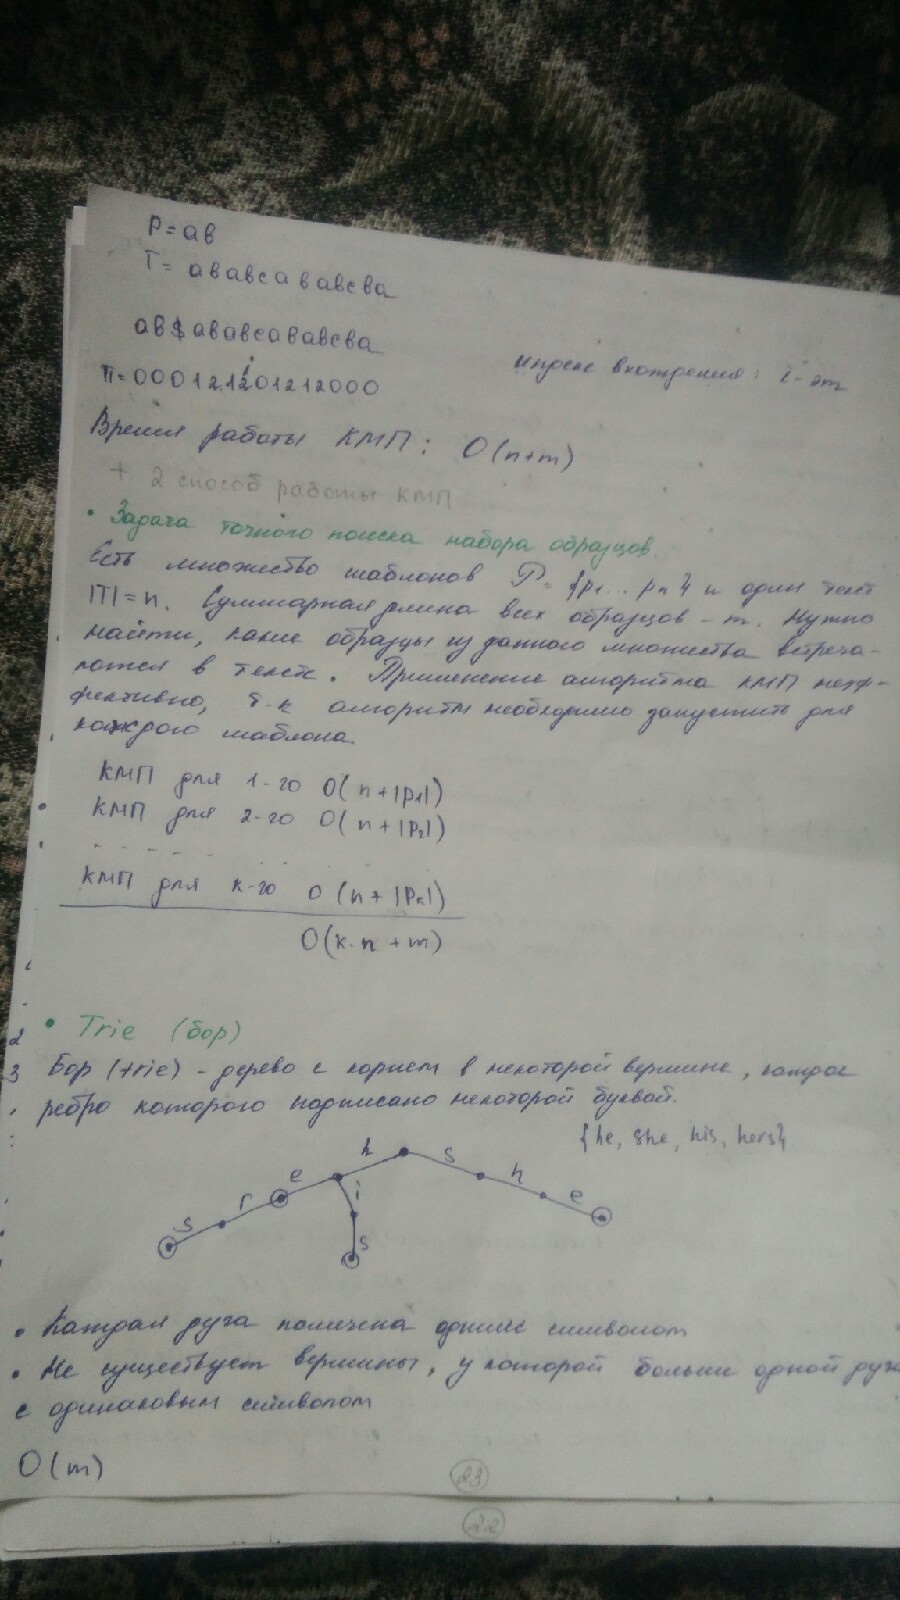 P = ав
T = ававсавававсва
ав$ававсавававсва
индекс вхождения: i - 2m
Время работы КМП: O(n+m)
+ 2 способ работы КМП
• Задача точного поиска набора образцов.
Есть множество шаблонов P = {p₁ ... pₙ} и один текст
|T| = n. Суммарная длина всех образцов - m. Нужно
найти, какие образцы из данного множества встреча-
ются в тексте. Применение алгоритма КМП неэф-
фективно, т-к алгоритм необходимо запустить для
каждого шаблона.
КМП для 1-го O(n+|p₁|)
КМП для 2-го O(n+|p₂|)
КМП для к-го O(n+|pₖ|)
O(k·n + m)
• Trie (бор)
Бор (trie) - дерево с корнем в некоторой вершине, каждое
ребро которого подписано некоторой буквой.
{he, she, his, hers}
h s
e h
r i e
s s
• Каждая дуга помечена одним символом
• Не существует вершины, у которой больше одной дуги
с одинаковым символом
O(m)
23
22